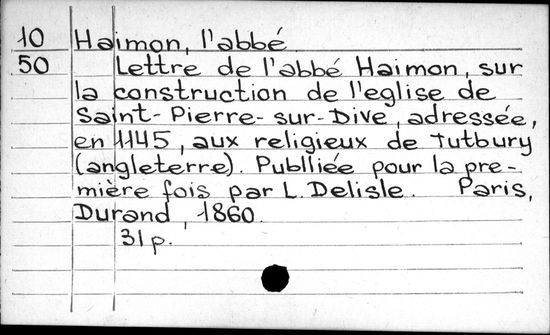 10 Haimon, l'abbé
50 Lettre de l'abbé Haimon, sur
la construction de l'eglise de
Saint-Pierre-sur-Dive, adressée,
en 1145, aux religieux de Tutbury
(angleterre). Publliée pour la pre-
mière fois par L. Delisle. Paris,
Durand, 1860.
31p.